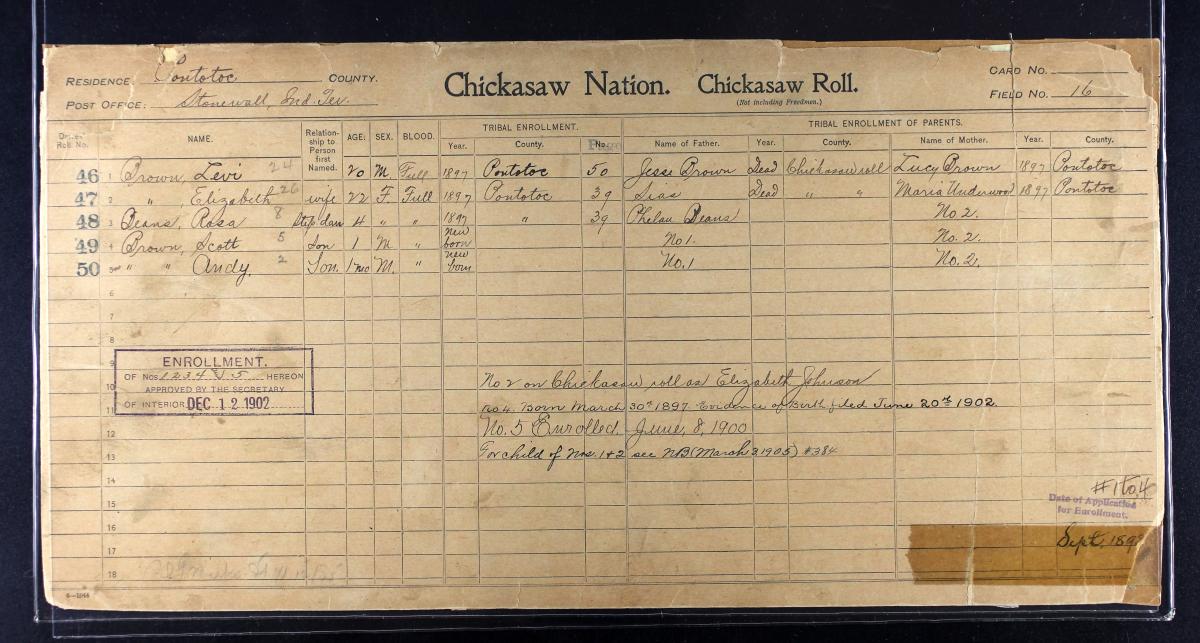 RESIDENCE: Pontotoc COUNTY.
POST OFFICE: Stonewall, Ind. Ter.
Chickasaw Nation. Chickasaw Roll.
(Not including Freedmen.)
CARD NO.
FIELD NO. 16
Roll No. NAME. Relationship to Person first Named. AGE. SEX. BLOOD. TRIBAL ENROLLMENT. TRIBAL ENROLLMENT OF PARENTS.
Year. County. No. Name of Father. Year. County. Name of Mother. Year. County.
46 1 Brown, Levi 24 20 M. Full 1897 Pontotoc 50 Jesse Brown Dead Chickasaw roll Lucy Brown 1897 Pontotoc
47 2 " Elizabeth 26 wife 22 F. Full 1897 Pontotoc 39 Sias Dead " " Maria Underwood 1897 Pontotoc
48 3 Beans, Rosa 8 Step dau 4 " " 1897 " 39 Phelan Beans No 2.
49 4 Brown, Scott 5 Son 1 M " new born No 1. No. 2.
50 5 " " Andy 2 Son. 1 mo M. " new born No. 1 No. 2.
6
7
8
9
ENROLLMENT.
OF Nos 1 2 3 4 & 5 HEREON
APPROVED BY THE SECRETARY
OF INTERIOR DEC 12 1902
10 No 2 on Chickasaw roll as Elizabeth Johnson
11 No 4. Born March 30th 1897. Evidence of Birth filed June 20th 1902.
12 No. 5 Enrolled June, 8, 1900
13 For child of Nos. 1 & 2 see NB (March 3 1905) #384
14
#1 to 4
15 Date of Application
for Enrollment.
16
Sept. 189
17
18
6—1944